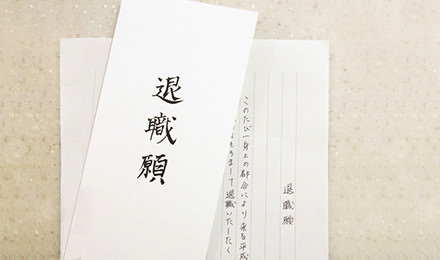 退職願
退職願
このたび一身上の都合により来る平成
をもちまして退職いたしたく